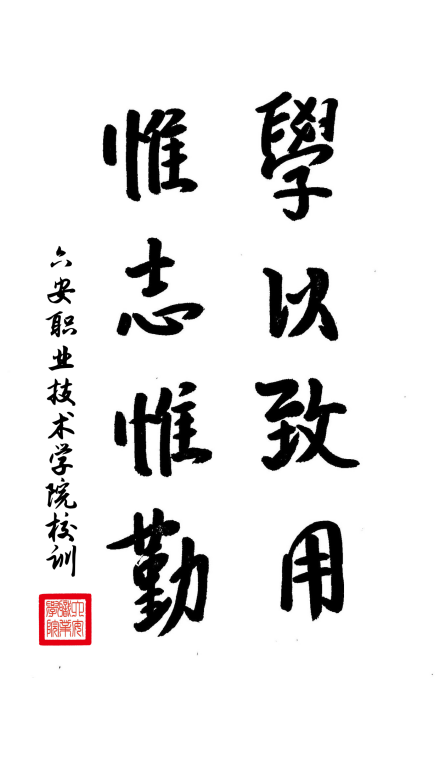 學以致用
惟志惟勤
六安职业技术学院校训